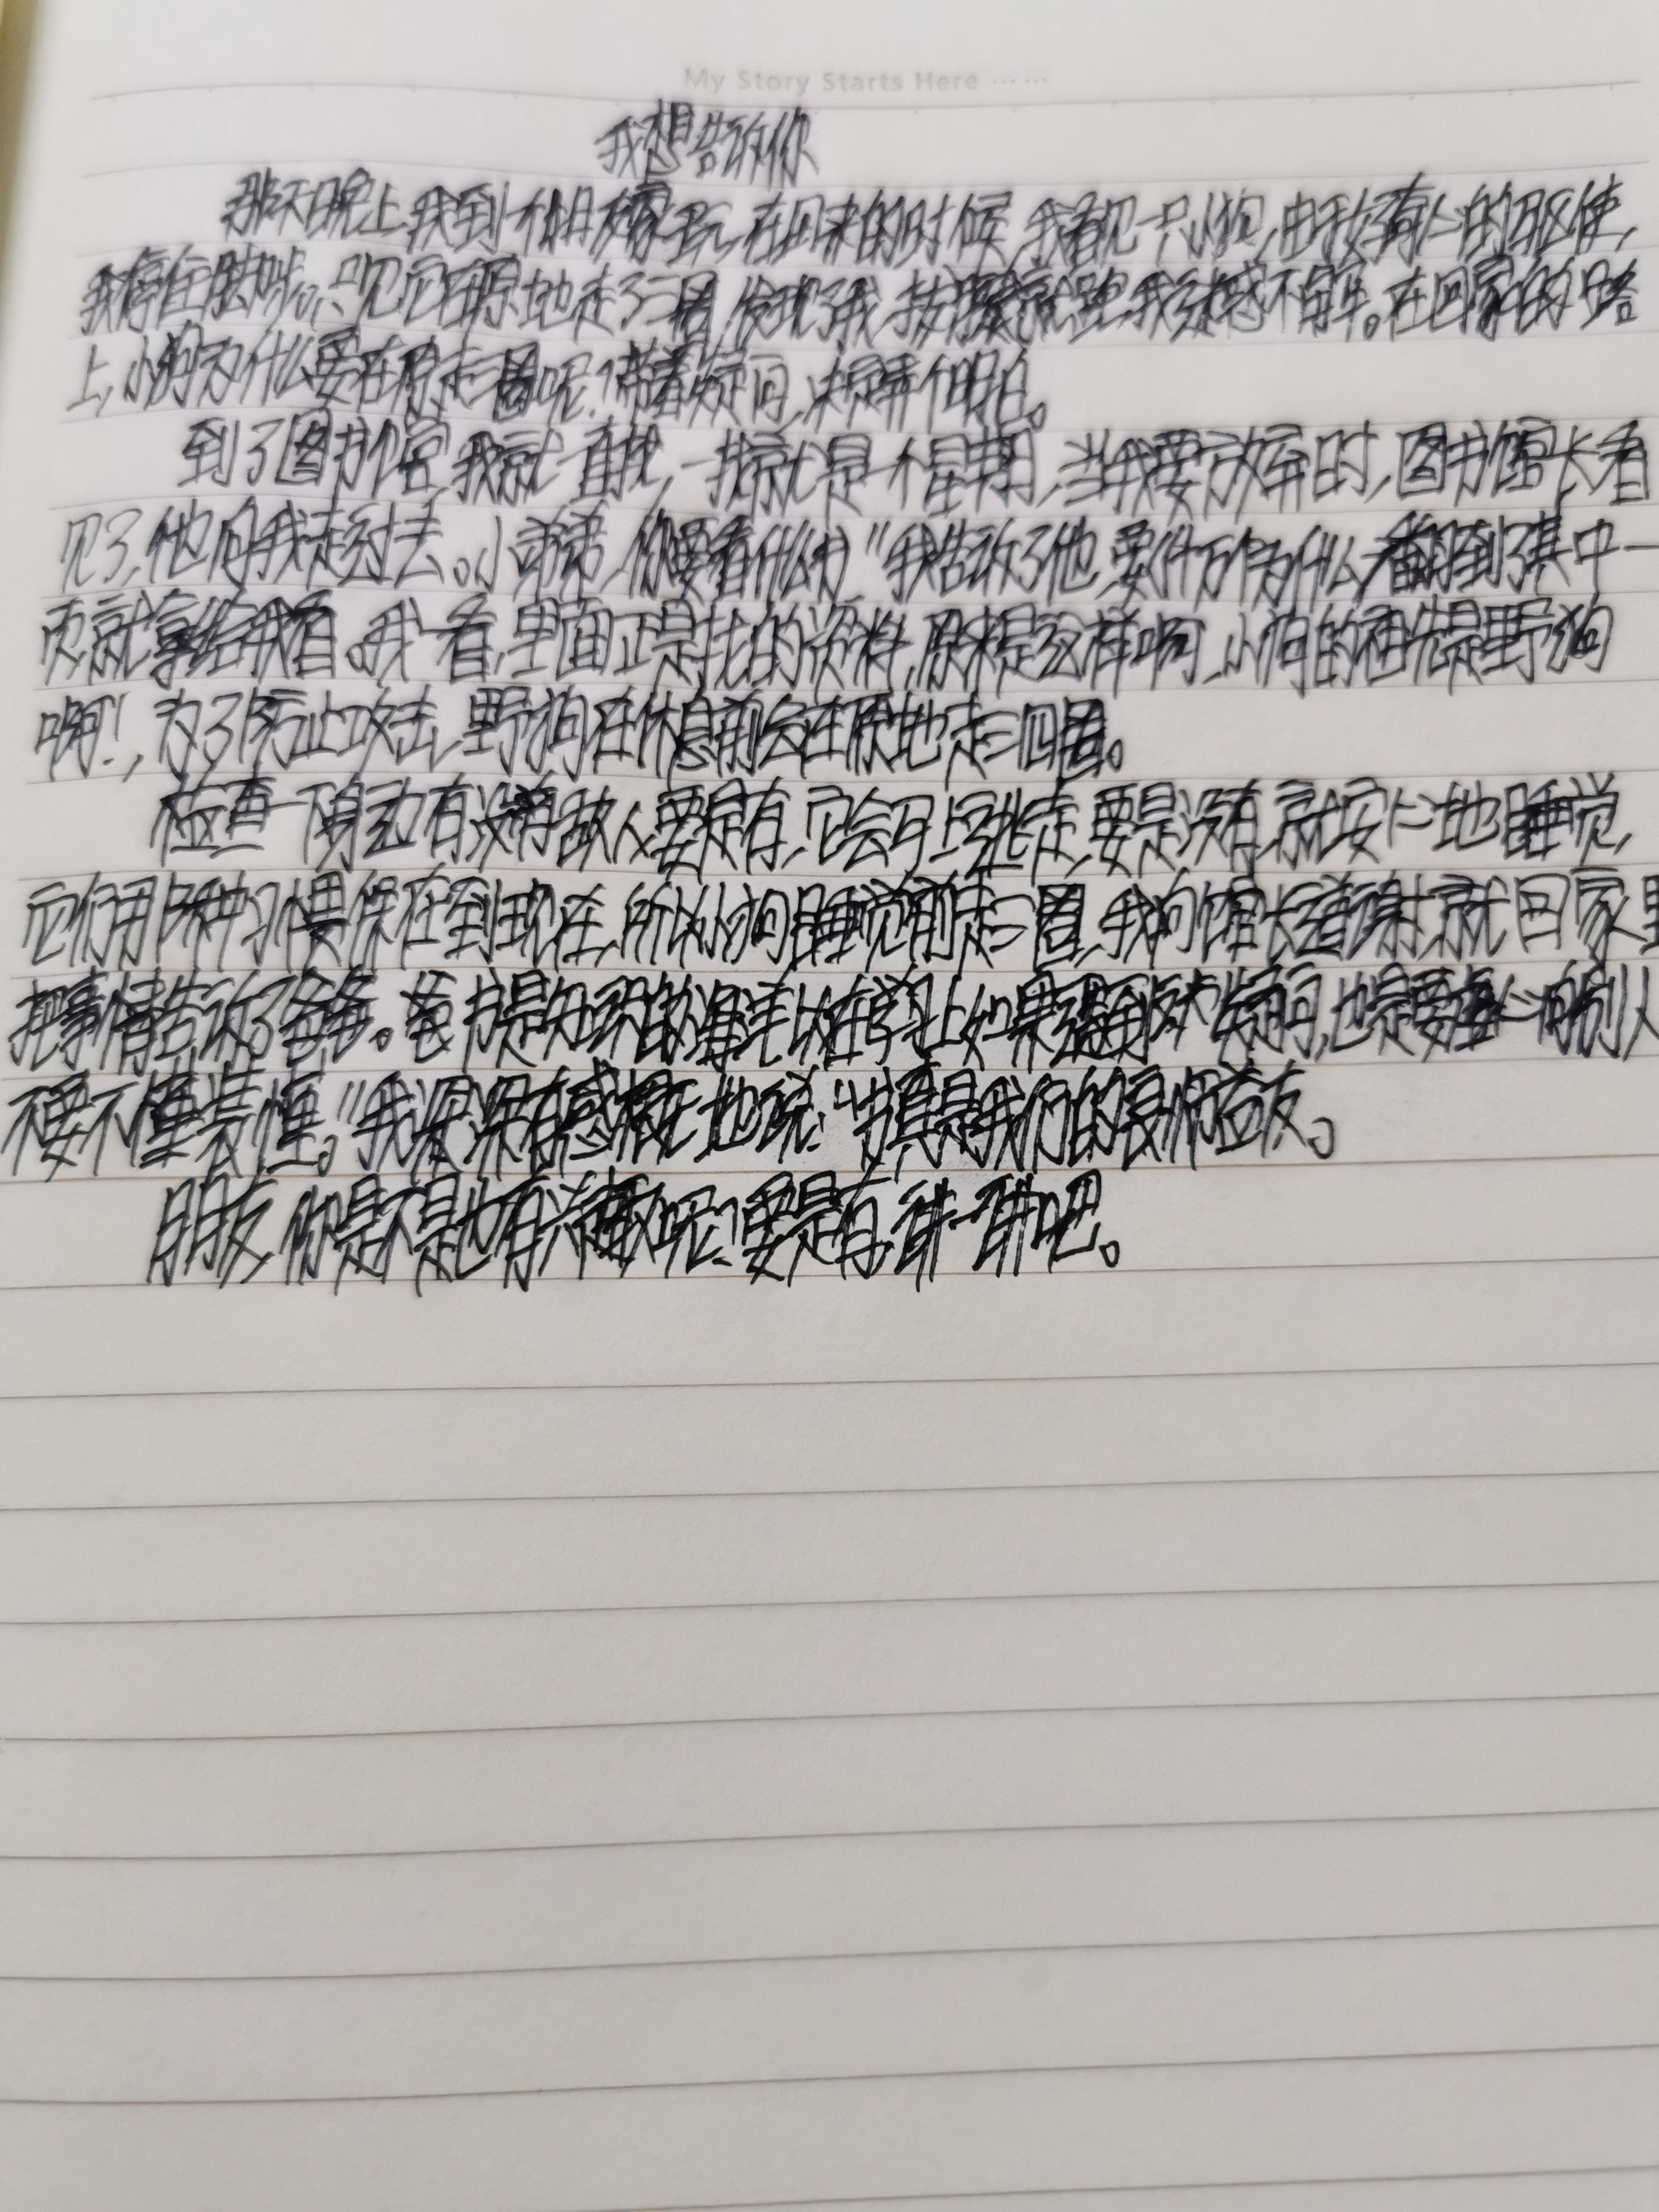 My Story Starts Here ……
我想告诉你
那天晚上,我到 家玩,在回来的时候,我看见一只小狗,由于好奇心的驱使,
我停住脚步。只见它在原地走了三圈,发现了我,就跑,我 不解。在回家的路
上,小狗为什么要在原走三圈呢?带着疑问,决定弄个明白。
到了图书馆,我就一直找,一找就是一个星期,当我要放弃时,图书馆长看
见了,他向我走过去。小弟弟,你要看什么书"我告诉了他,要 万个为什么翻到了其中一
页就拿给我看。我一看,里面正是找的资料,原来是这样啊,小狗的祖先是野狗
啊!,为了防止攻击,野狗在休息前会在原地走三四圈。
检查一下身边有没有敌人要是有,它会马上逃走,要是没有,就安心地睡觉,
它们用 种习惯保存到现在,所以小狗睡觉前走三圈,我向馆长道谢,就回家里
把事情告诉了爸爸。爸 书是知识的海洋 在学 上如果遇到 疑问,也是要 心问别人
不要不懂装懂。"我深深有感概地说:"书真是我们的良师益友。
朋友,你是不是也有兴趣呢?要是有,讲一讲吧。